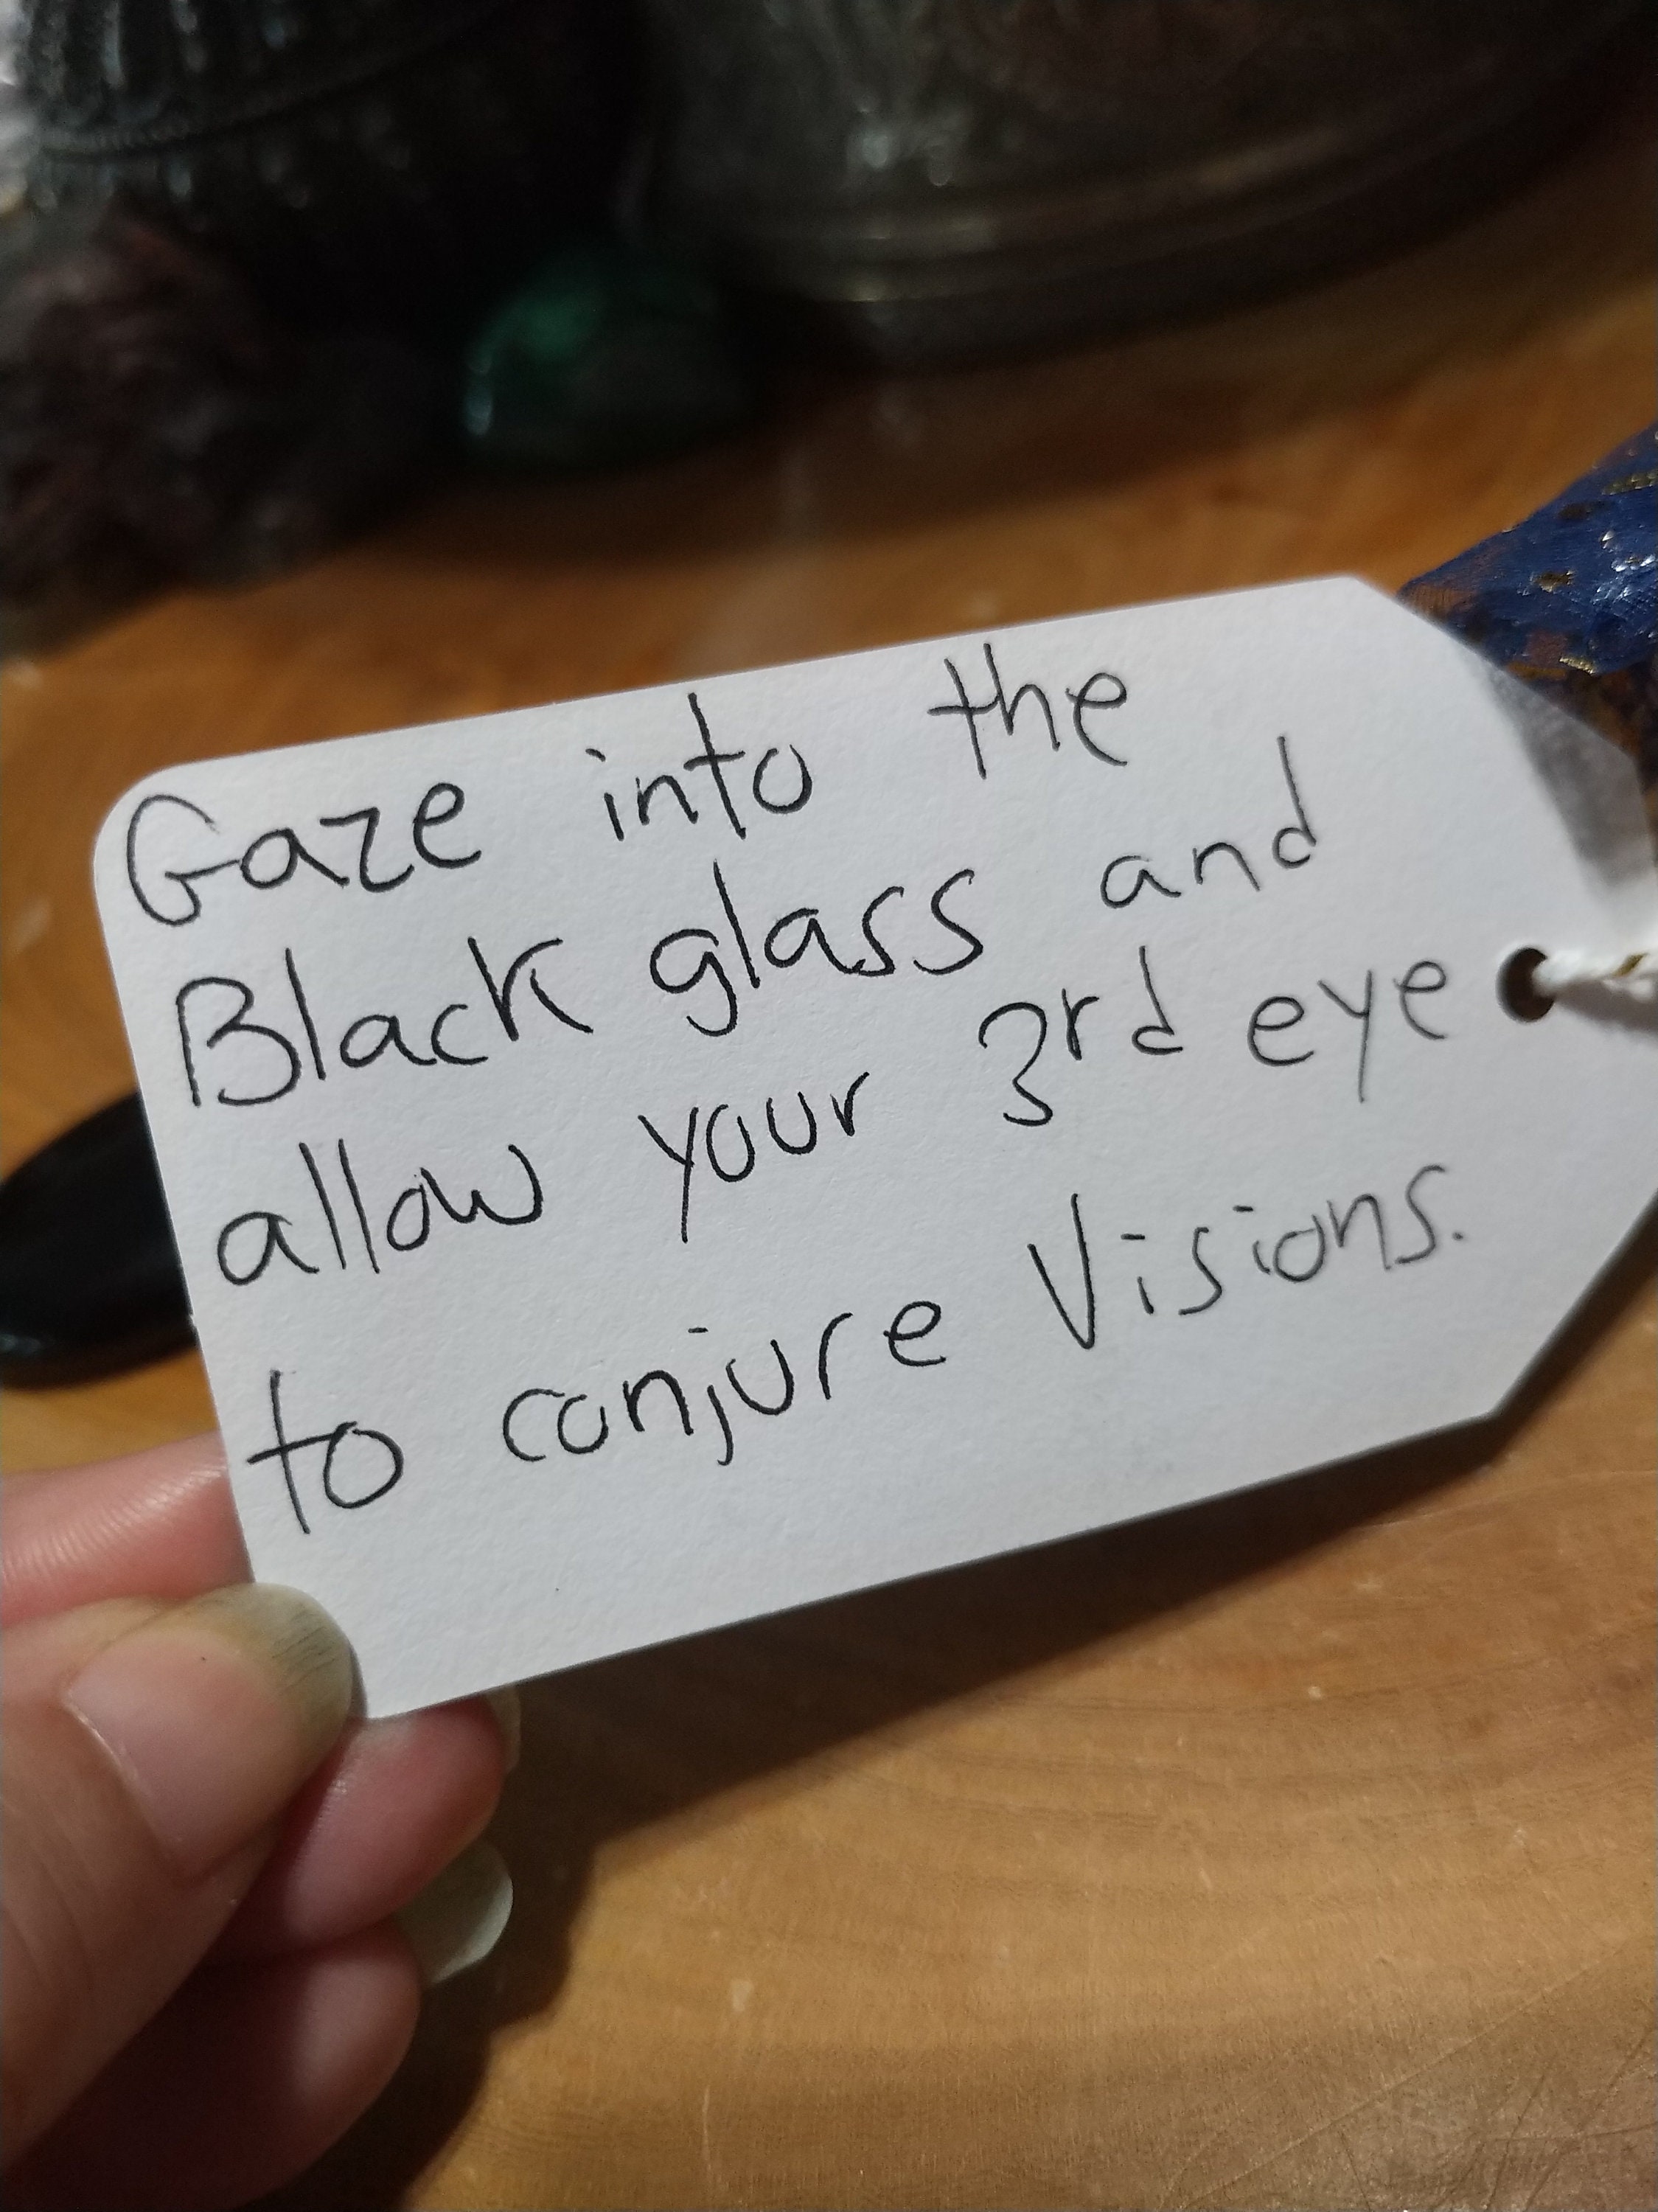 Gaze into the
Black glass and
allow your 3rd eye
to conjure Visions.